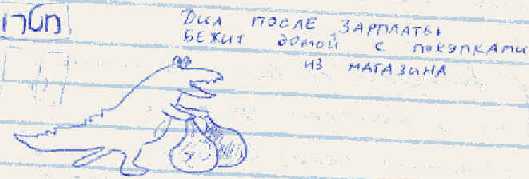 ДИЛ ПОСЛЕ ЗАРПЛАТЫ
БЕЖИТ ДОМОЙ С ПОКУПКАМИ
ИЗ МАГАЗИНА